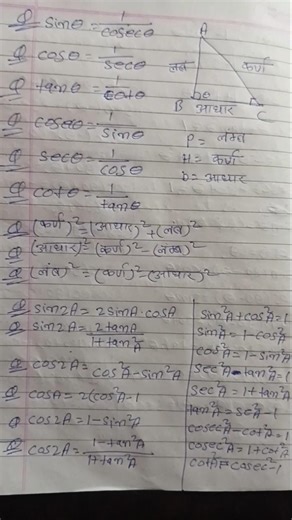 Q sinθ = 1/cosecθ
Q cosθ = 1/secθ
Q tanθ = 1/cotθ
Q cosecθ = 1/sinθ
Q secθ = 1/cosθ
Q cotθ = 1/tanθ
A
लंब
कर्ण
θ
B आधार C
P = लम्ब
H = कर्ण
b = आधार
Q (कर्ण)² = (आधार)² + (लंब)²
Q (आधार)² = (कर्ण)² - (लम्ब)²
Q (लंब)² = (कर्ण)² - (आधार)²
Q sin2A = 2sinA·cosA
Q sin2A = 2tanA/1+tan²A
Q cos2A = cos²A - sin²A
Q cosA = 2cos²A - 1
Q cos2A = 1 - sin²A
Q cos2A = 1-tan²A/1+tan²A
sin²A + cos²A = 1
sin²A = 1 - cos²A
cos²A = 1 - sin²A
sec²A - tan²A = 1
sec²A = 1 + tan²A
tan²A = sec²A - 1
cosec²A - cot²A = 1
cosec²A = 1 + cot²A
cot²A = cosec² - 1